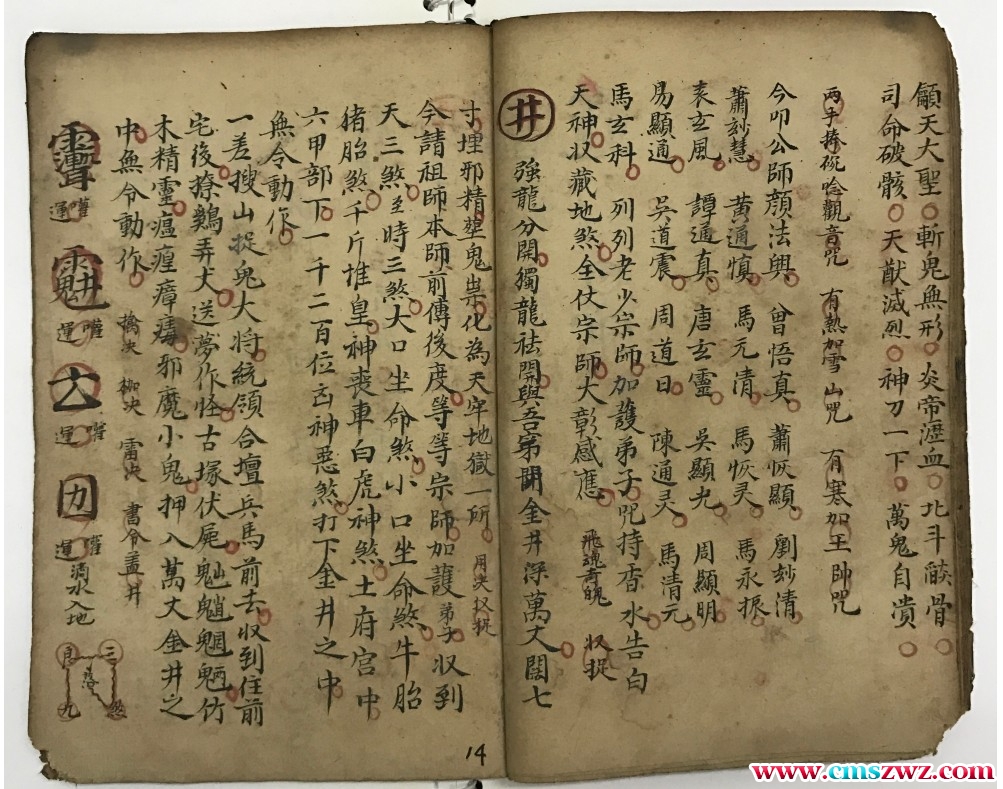 顲天大聖斬鬼無形炎帝瀝血北斗燄骨
司命破骸天猷滅烈神刀一下萬鬼自潰
兩手捧碗唸觀音咒 有熱加雪山咒 有寒加王帥咒
今叩公師顏法興 曾悟真 蕭恢顯 劉玅清
蕭玅慧 黃通慎 馬元清 馬恢灵 馬永振
袁玄風 譚通真 唐玄靈 吳顯光 周顯明
易顯通 吳道震 周道日 陳通灵 馬清元
馬玄科 列列老少宗師加護弟子咒持香水告白
天神収藏地煞全仗宗師大彰感應 収捉
井 強龍分開獨龍祛開與吾弟開金井深萬丈闊七
寸埋邪精塟鬼祟化為天牢地獄一所
今請祖師本師前傳後度等等宗師加護弟子収到
天三煞 時三煞大口坐命煞小口坐命煞牛胎
猪胎煞千斤惟皇神喪車白虎神煞土府宫中
六甲部下一千二百位凶神惡煞打下金井之中
無令動作
一差搜山捉鬼大将統領合壇兵馬前去収到住前
宅後撩鷄弄犬送夢作怪古塚伏屍魈魍魎竹
木精靈瘟瘽瘴癘邪魔小鬼押入萬丈金井之
中無令動作 擒决 柳决 雷决 書令盖井
運 運 運 運 滴水入地
三 煞 九
14
www.cmszwz.com